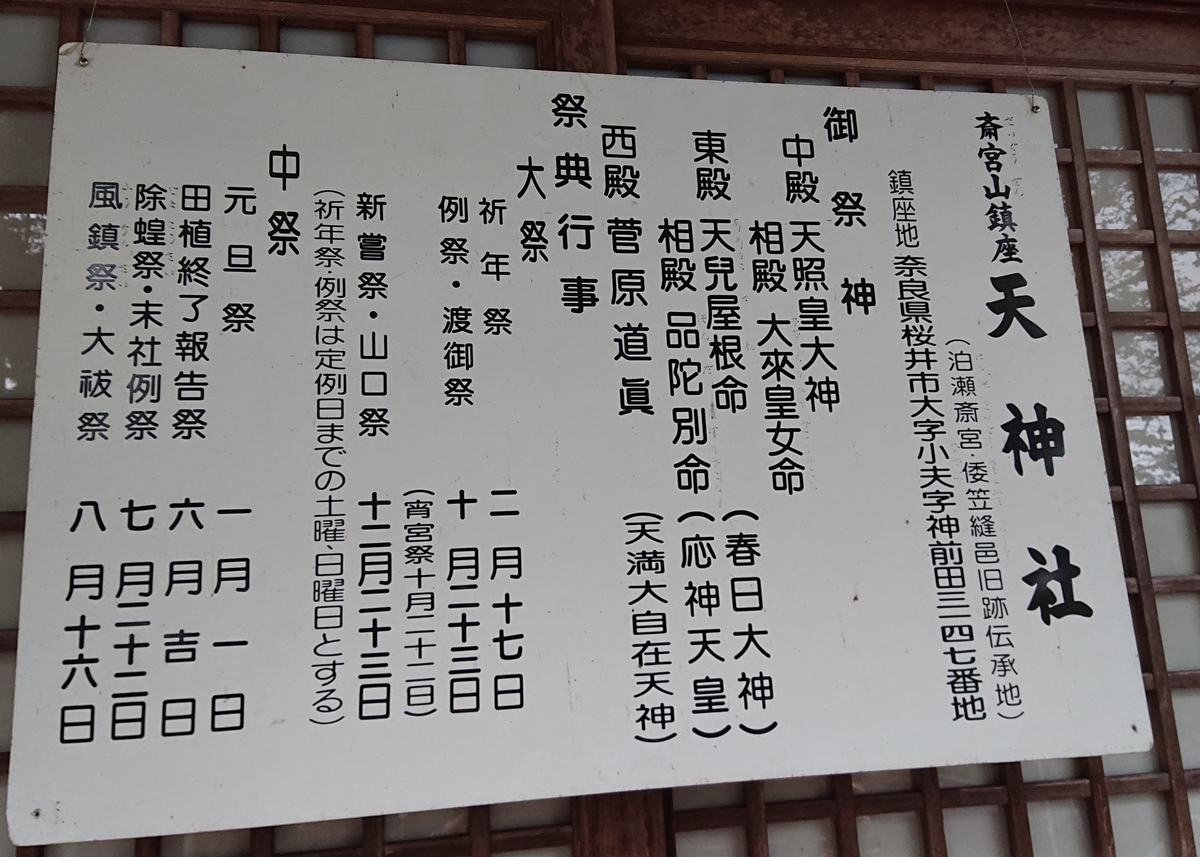 斎宮山鎮座 天神社
(泊瀬斎宮・倭笠縫邑旧跡伝承地)
鎮座地 奈良県桜井市大字小夫字神前田三一四七番地
御祭神
中殿 天照皇大神
相殿 大來皇女命
東殿 天兒屋根命 (春日大神)
相殿 品陀別命 (応神天皇)
西殿 菅原道眞 (天満大自在天神)
祭典行事
大祭
祈年祭 二月十七日
例祭・渡御祭 十月二十三日
(宵宮祭十月二十二日)
新嘗祭・山口祭 十二月二十三日
(祈年祭・例祭は定例日までの土曜、日曜日とする)
中祭
元旦祭 一月一日
田植終了報告祭 六月吉日
除蝗祭・末社例祭 七月二十二日
風鎮祭・大祓祭 八月十六日